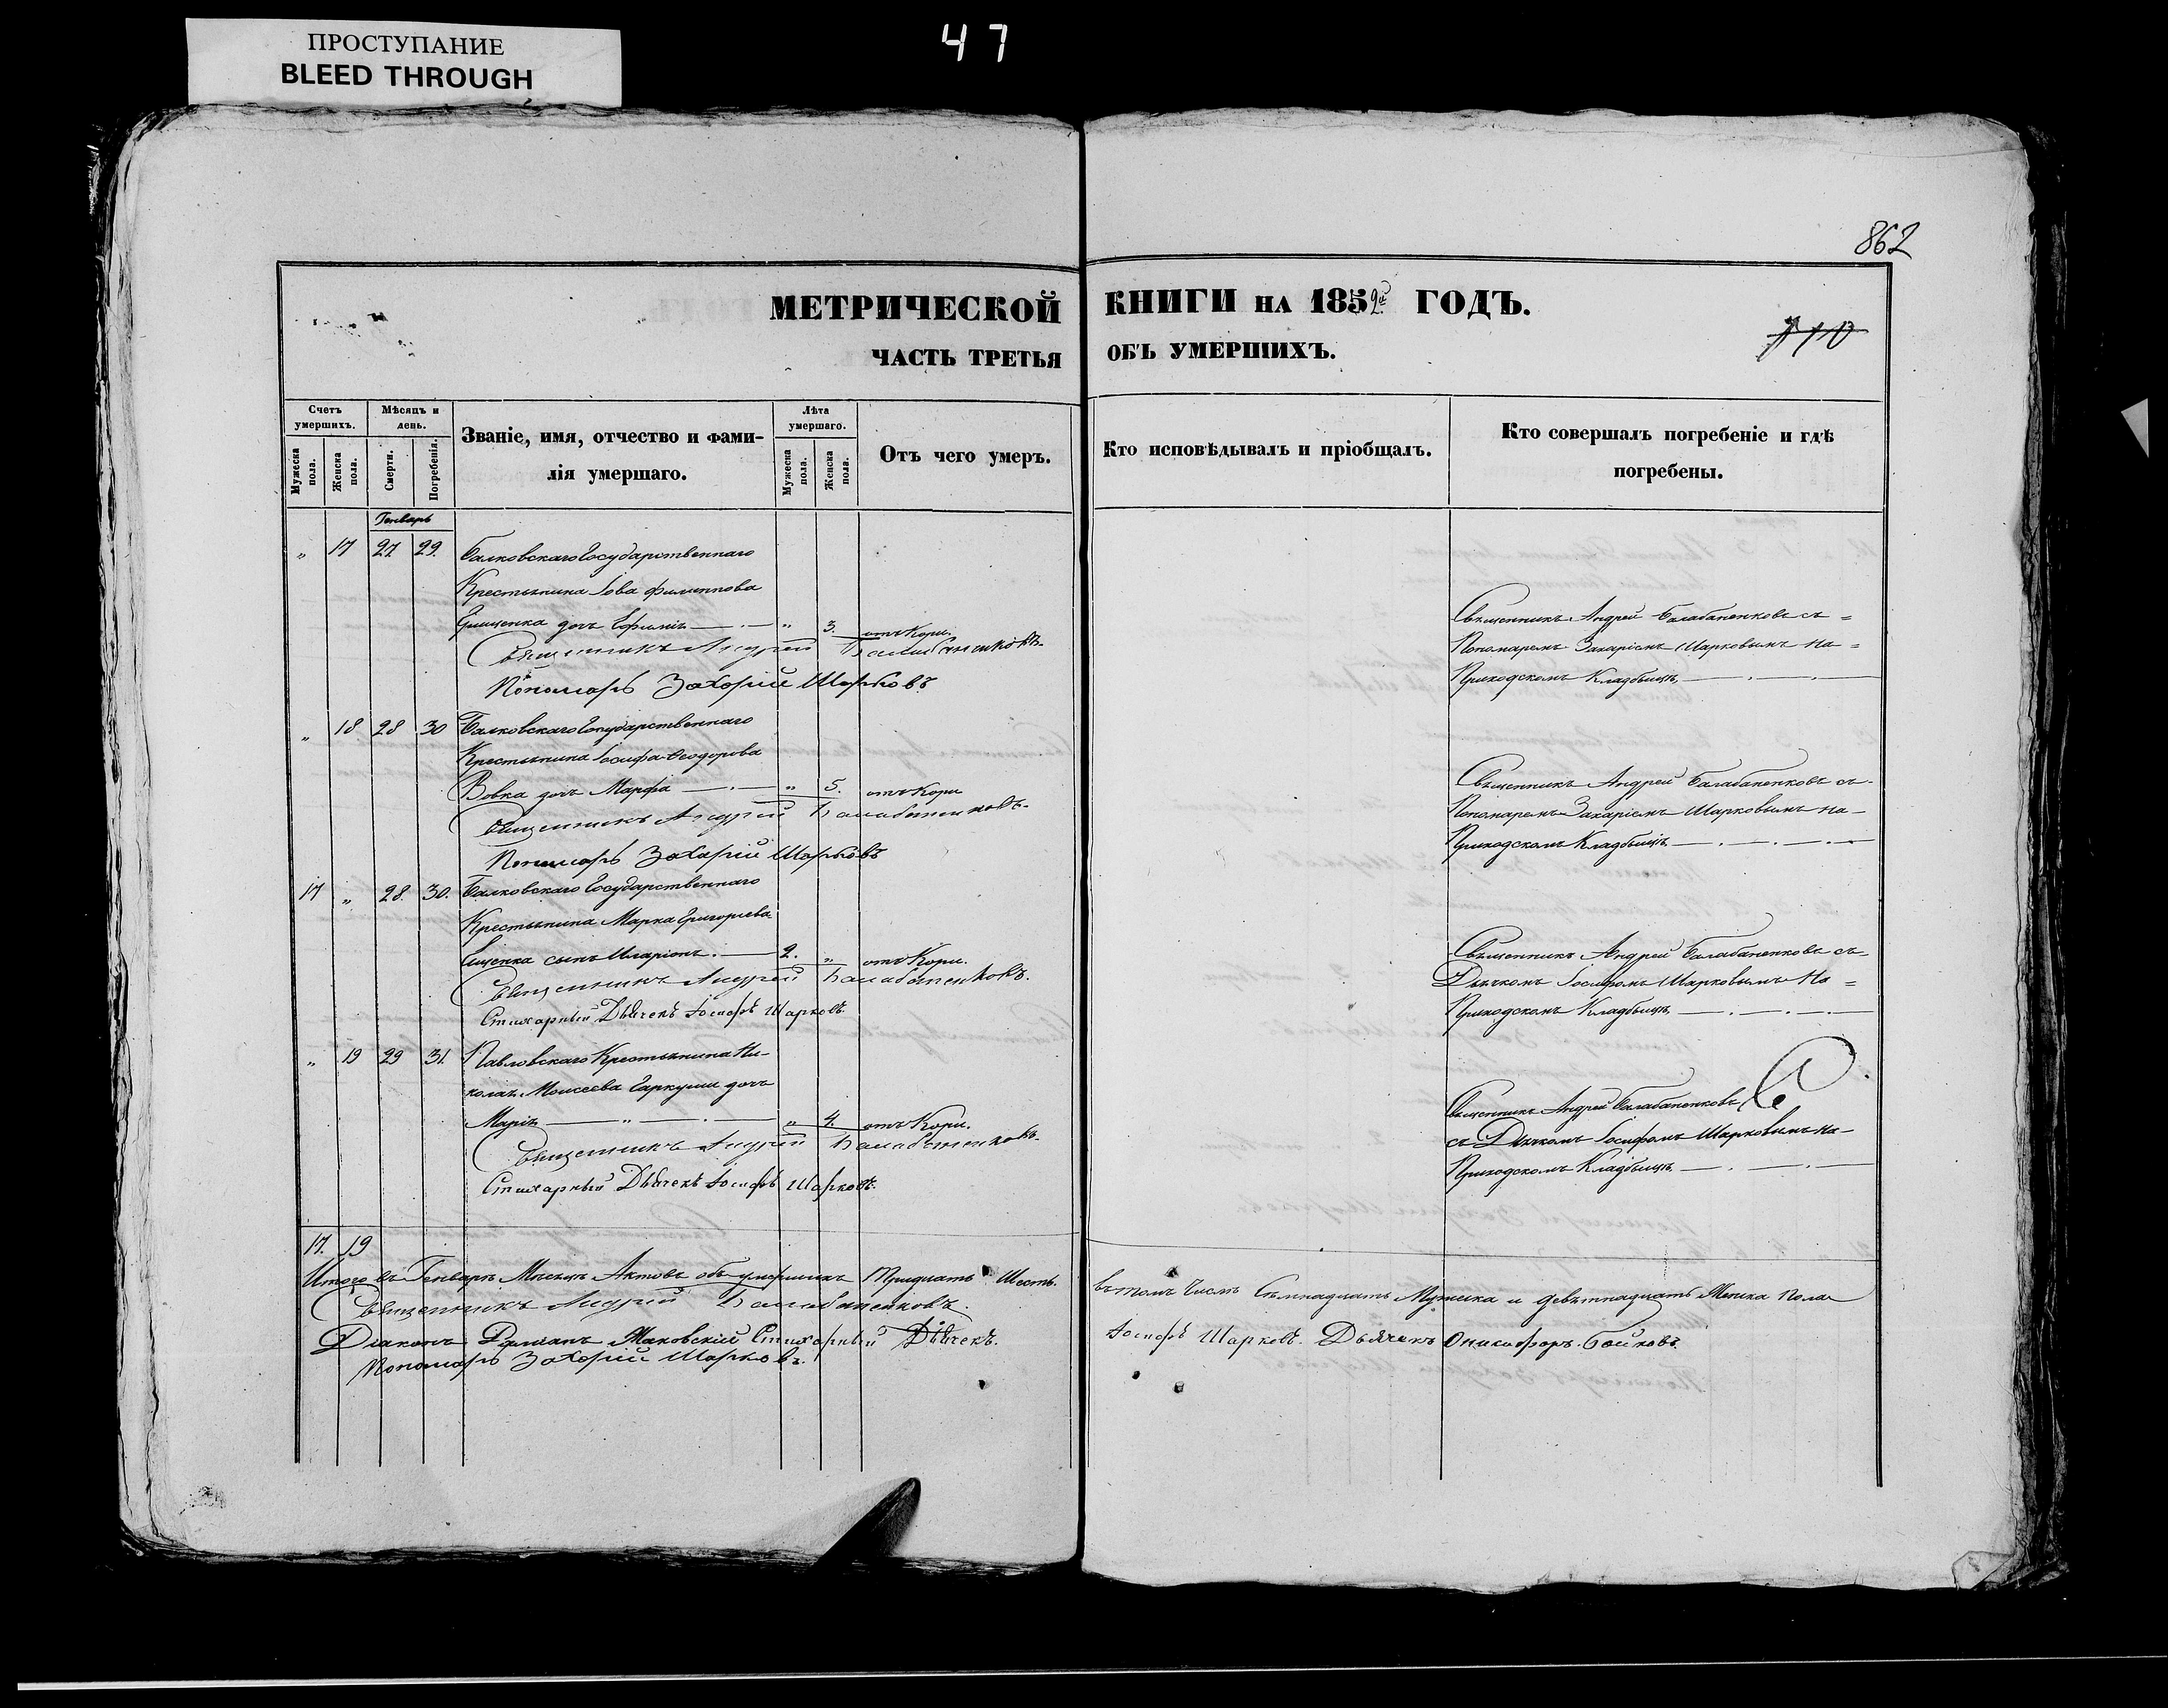 ПРОСТУПАНИЕ
BLEED THROUGH
47
862
МЕТРИЧЕСКОЙ КНИГИ НА 1852й ГОДЪ.
ЧАСТЬ ТРЕТЬЯ ОБЪ УМЕРШИХЪ.
Счетъ умершихъ.
Мужеска пола.
Женска пола.
Мѣсяцъ и день.
Смерти.
Погребенія.
Званіе, имя, отчество и фамилія умершаго.
Лѣта умершаго.
Мужеска пола.
Женска пола.
Отъ чего умеръ.
Кто исповѣдывалъ и пріобщалъ.
Кто совершалъ погребеніе и гдѣ погребены.
Генварь
„ 17 27 29. Балковскаго Государственнаго
Крестьянина Іова Филиппова
Грищенка дочь Ефимія „ 3. отъ Кори.
Священникъ Андрей Балабаненковъ.
Пономарь Захарій Шарковъ
Священникъ Андрей Балабаненковъ съ =
Пономаремъ Захаріемъ Шарковымъ на =
Приходскомъ Кладбищѣ
„ 18 28 30 Балковскаго Государственнаго
Крестьянина Іосифа Ѳеодорова
Вовка дочь Марфа „ 5. отъ Кори
Священникъ Андрей Балабаненковъ.
Пономарь Захарій Шарковъ
Священникъ Андрей Балабаненковъ съ
Пономаремъ Захаріемъ Шарковымъ на
Приходскомъ Кладбищѣ
17 „ 28. 30. Балковскаго Государственнаго
Крестьянина Марка Григорьева
сынъ Иларіонъ. 2. „ отъ Кори.
Священникъ Андрей Балабаненковъ.
Стихарный Дьячекъ Іосифъ Шарковъ
Священникъ Андрей Балабаненковъ съ
Дьячкомъ Іосифомъ Шарковымъ на =
Приходскомъ Кладбищѣ
„ 19 29 31. Павловскаго Крестьянина Ни-
колая Моисеева Гаркуши дочь
Марія „ 4. отъ Кори.
Священникъ Андрей Балабаненковъ.
Стихарный Дьячекъ Іосифъ Шарковъ.
Священникъ Андрей Балабаненковъ
съ Дьячкомъ Іосифомъ Шарковымъ на
Приходскомъ Кладбищѣ
17. 19
Итого въ Генварѣ Мѣсяцѣ Актовъ объ умершихъ Тридцать Шесть. въ томъ Числѣ Семнадцать Мужска и девятнадцать Женска пола
Священникъ Андрей Балабаненковъ.
Діаконъ Даміанъ Маковскій Стихарный Дьячекъ. Іосифъ Шарковъ. Дьячекъ Онисифоръ Бойковъ.
Пономарь Захарій Шарковъ.